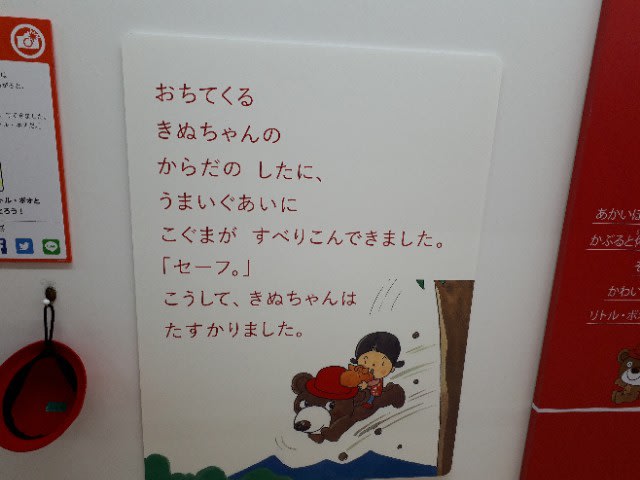 おちてくる
きぬちゃんの
からだの したに、
うまいぐあいに
こぐまが すべりこんできました。
「セーフ。」
こうして、きぬちゃんは
たすかりました。
あかい
かぶると
かわい
リトル・ボオ